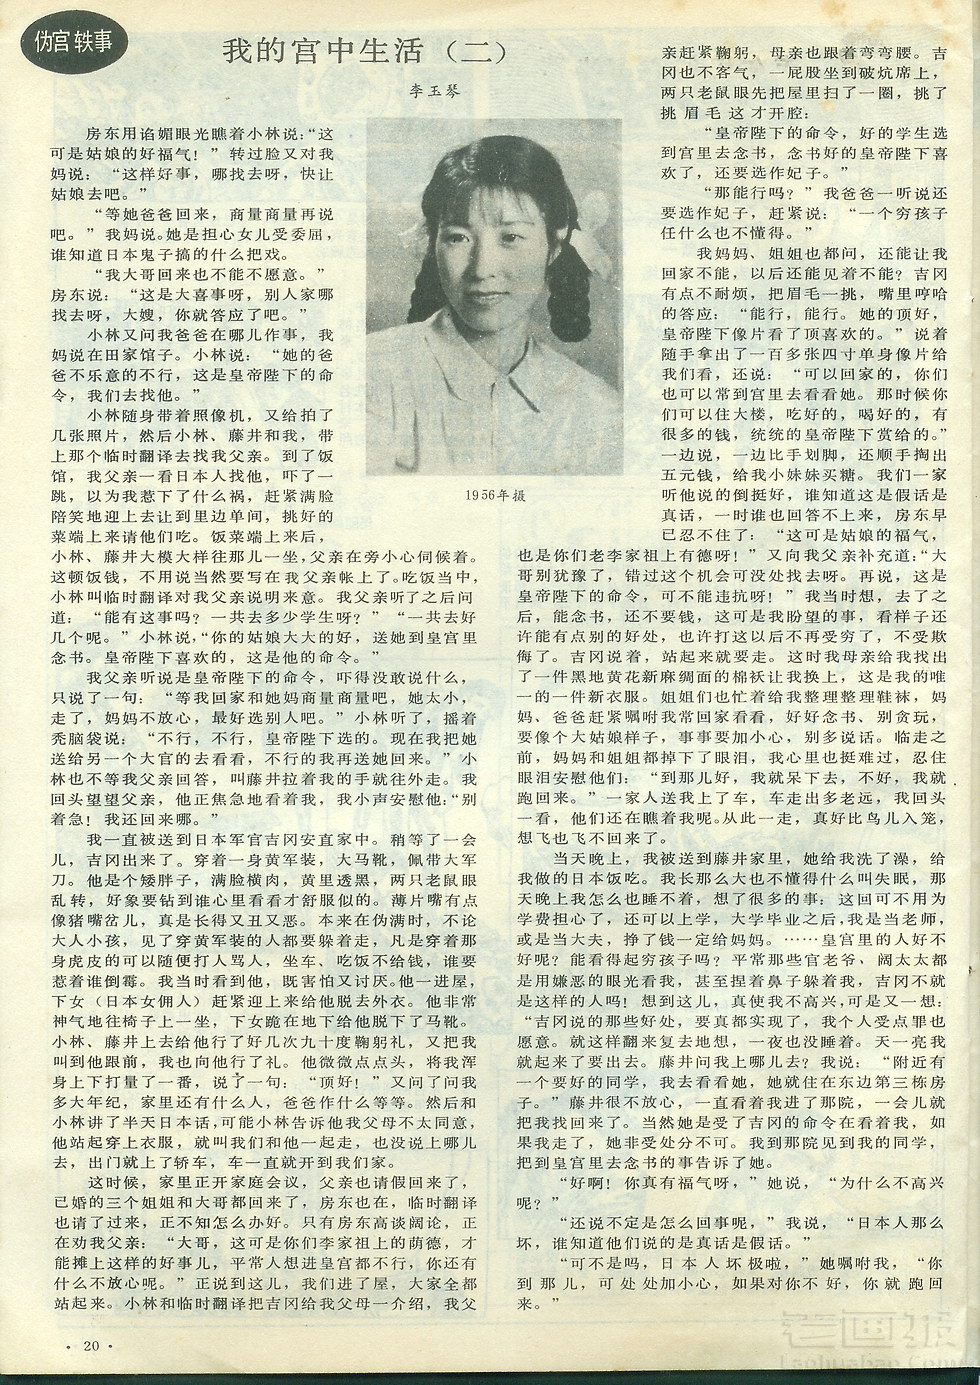 伪宫轶事
我的宫中生活（二）
李玉琴
房东用谄媚眼光瞧着小林说：“这
可是姑娘的好福气！”转过脸又对我
妈说：“这样好事，哪找去呀，快让
姑娘去吧。”
“等她爸爸回来，商量商量再说
吧。”我妈说。她是担心女儿受委屈，
谁知道日本鬼子搞的什么把戏。
“我大哥回来也不能不愿意。”
房东说：“这是大喜事呀，别人家哪
找去呀，大嫂，你就答应了吧。”
小林又问我爸爸在哪儿作事，我
妈说在田家馆子。小林说：“她的爸
爸不乐意的不行，这是皇帝陛下的命
令，我们去找他。”
小林随身带着照像机，又给拍了
几张照片，然后小林、藤井和我，带
上那个临时翻译去找我父亲。到了饭
馆，我父亲一看日本人找他，吓了一
跳，以为我惹下了什么祸，赶紧满脸
陪笑地迎上去让到里边单间，挑好的
菜端上来请他们吃。饭菜端上来后，
小林、藤井大模大样往那儿一坐，父亲在旁小心伺候着。
这顿饭钱，不用说当然要写在我父亲帐上了。吃饭当中，
小林叫临时翻译对我父亲说明来意。我父亲听了之后问
道：“能有这事吗？一共去多少学生呀？”“一共去好
几个呢。”小林说，“你的姑娘大大的好，送她到皇宫里
念书。皇帝陛下喜欢的，这是他的命令。”
我父亲听说是皇帝陛下的命令，吓得没敢说什么，
只说了一句：“等我回家和她妈商量商量吧，她太小，
走了，妈妈不放心，最好选别人吧。”小林听了，摇着
秃脑袋说：“不行，不行，皇帝陛下选的。现在我把她
送给另一个大官的去看看，不行的我再送她回来。”小
林也不等我父亲回答，叫藤井拉着我的手就往外走。我
回头望望父亲，他正焦急地看着我，我小声安慰他：“别
着急！我还回来哪。”
我一直被送到日本军官吉冈安直家中。稍等了一会
儿，吉冈出来了。穿着一身黄军装，大马靴，佩带大军
刀。他是个矮胖子，满脸横肉，黄里透黑，两只老鼠眼
乱转，好象要钻到谁心里看看才舒服似的。薄片嘴有点
像猪嘴岔儿，真是长得又丑又恶。本来在伪满时，不论
大人小孩，见了穿黄军装的人都要躲着走，凡是穿着那
身虎皮的可以随便打人骂人，坐车、吃饭不给钱，谁要
惹着谁倒霉。我当时看到他，既害怕又讨厌。他一进屋，
下女（日本女佣人）赶紧迎上来给他脱去外衣。他非常
神气地往椅子上一坐，下女跪在地下给他脱下了马靴。
小林、藤井上去给他行了好几次九十度鞠躬礼，又把我
叫到他跟前，我也向他行了礼。他微微点点头，将我浑
身上下打量了一番，说了一句：“顶好！”又问了问我
多大年纪，家里还有什么人，爸爸作什么等等。然后和
小林讲了半天日本话，可能小林告诉他我父母不太同意，
他站起穿上衣服，就叫我们和他一起走，也没说上哪儿
去，出门就上了轿车，车一直就开到我们家。
这时候，家里正开家庭会议，父亲也请假回来了，
已婚的三个姐姐和大哥都回来了，房东也在，临时翻译
也请了过来，正不知怎么办好。只有房东高谈阔论，正
在劝我父亲：“大哥，这可是你们李家祖上的荫德，才
能摊上这样的好事儿，平常人想进皇宫都不行，你还有
什么不放心呢。”正说到这儿，我们进了屋，大家全都
站起来。小林和临时翻译把吉冈给我父母一介绍，我父
1956年摄
亲赶紧鞠躬，母亲也跟着弯弯腰。吉
冈也不客气，一屁股坐到破炕席上，
两只老鼠眼先把屋里扫了一圈，挑了
挑眉毛这才开腔：
“皇帝陛下的命令，好的学生选
到宫里去念书，念书好的皇帝陛下喜
欢了，还要选作妃子。”
“那能行吗？”我爸爸一听说还
要选作妃子，赶紧说：“一个穷孩子
任什么也不懂得。”
我妈妈、姐姐也都问，还能让我
回家不能，以后还能见着不能？吉冈
有点不耐烦，把眉毛一挑，嘴里哼哈
的答应：“能行，能行。她的顶好，
皇帝陛下像片看了顶喜欢的。”说着
随手拿出了一百多张四寸单身像片给
我们看，还说：“可以回家的，你们
也可以常到宫里去看看她。那时候你
们可以住大楼，吃好的，喝好的，有
很多的钱，统统的皇帝陛下赏给的。”
一边说，一边比手划脚，还顺手掏出
五元钱，给我小妹妹买糖。我们一家
听他说的倒挺好，谁知道这是假话是
真话，一时谁也回答不上来，房东早
已忍不住了：“这可是姑娘的福气，
也是你们老李家祖上有德呀！”又向我父亲补充道：“大
哥别犹豫了，错过这个机会可没处找去呀。再说，这是
皇帝陛下的命令，可不能违抗呀！”我当时想，去了之
后，能念书，还不要钱，这可是我盼望的事，看样子还
许能有点别的好处，也许打这以后不再受穷了，不受欺
侮了。吉冈说着，站起来就要走。这时我母亲给我找出
了一件黑地黄花新麻绸面的棉袄让我换上，这是我的唯
一的一件新衣服。姐姐们也忙着给我整理整理鞋袜，妈
妈、爸爸赶紧嘱咐我常回家看看，好好念书、别贪玩，
要像个大姑娘样子，事事要加小心，别多说话。临走之
前，妈妈和姐姐都掉下了眼泪，我心里也挺难过，忍住
眼泪安慰他们：“到那儿好，我就呆下去，不好，我就
跑回来。”一家人送我上了车，车走出多老远，我回头
一看，他们还在瞧着我呢。从此一走，真好比鸟儿入笼，
想飞也飞不回来了。
当天晚上，我被送到藤井家里，她给我洗了澡，给
我做的日本饭吃。我长那么大也不懂得什么叫失眠，那
天晚上我怎么也睡不着，想了很多的事：这回可不用为
学费担心了，还可以上学，大学毕业之后，我是当老师，
或是当大夫，挣了钱一定给妈妈。……皇宫里的人好不
好呢？能看得起穷孩子吗？平常那些官老爷、阔太太都
是用嫌恶的眼光看我，甚至捏着鼻子躲着我，吉冈不就
是这样的人吗！想到这儿，真使我不高兴，可是又一想：
“吉冈说的那些好处，要真都实现了，我个人受点罪也
愿意。就这样翻来复去地想，一夜也没睡着。天一亮我
就起来了要出去。藤井问我上哪儿去？我说：“附近有
一个要好的同学，我去看看她，她就住在东边第三栋房
子。”藤井很不放心，一直看着我进了那院，一会儿就
把我找回来了。当然她是受了吉冈的命令在看着我，如
果我走了，她非受处分不可。我到那院见到我的同学，
把到皇宫里去念书的事告诉了她。
“好啊！你真有福气呀，”她说，“为什么不高兴
呢？”
“还说不定是怎么回事呢，”我说，“日本人那么
坏，谁知道他们说的是真话是假话。”
“可不是吗，日本人坏极啦，”她嘱咐我，“你
到那儿，可处处加小心，如果对你不好，你就跑回
来。”
· 20 ·
老画报
Laohuabao.Com